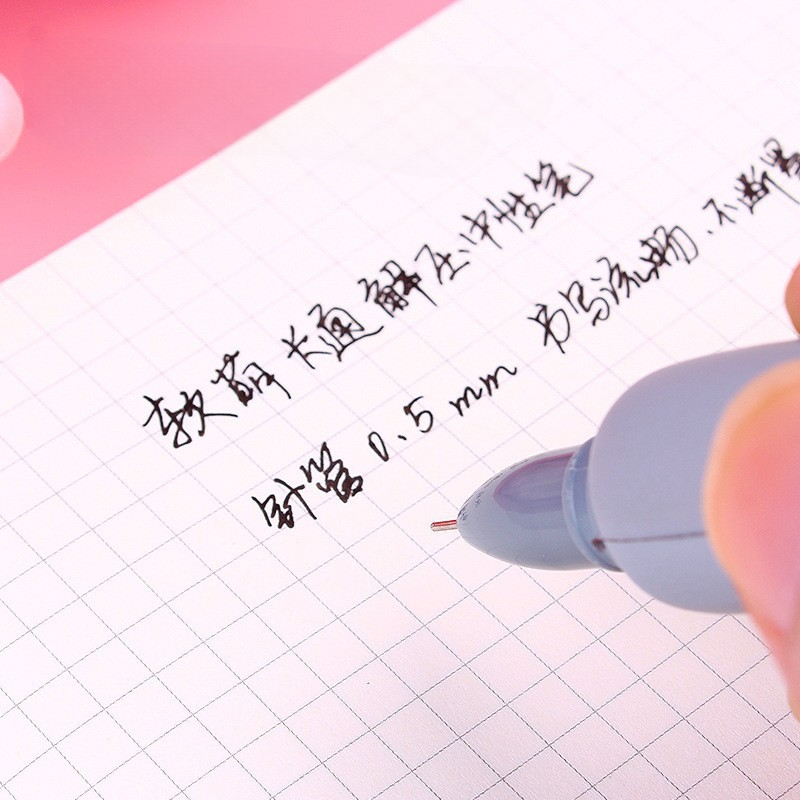 软萌卡通解压中性笔
针管0.5mm 书写流畅.不断墨